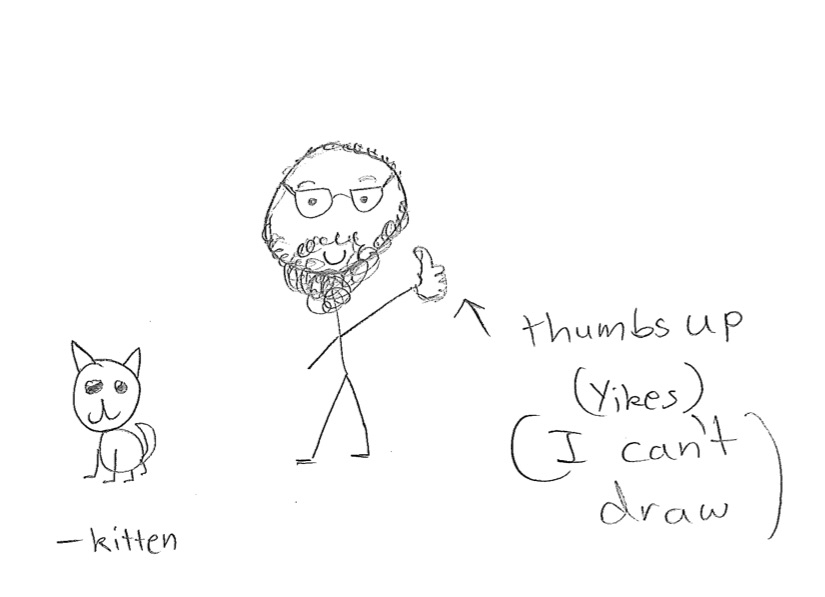 thumbs up
(Yikes)
(I can't
draw)
– kitten